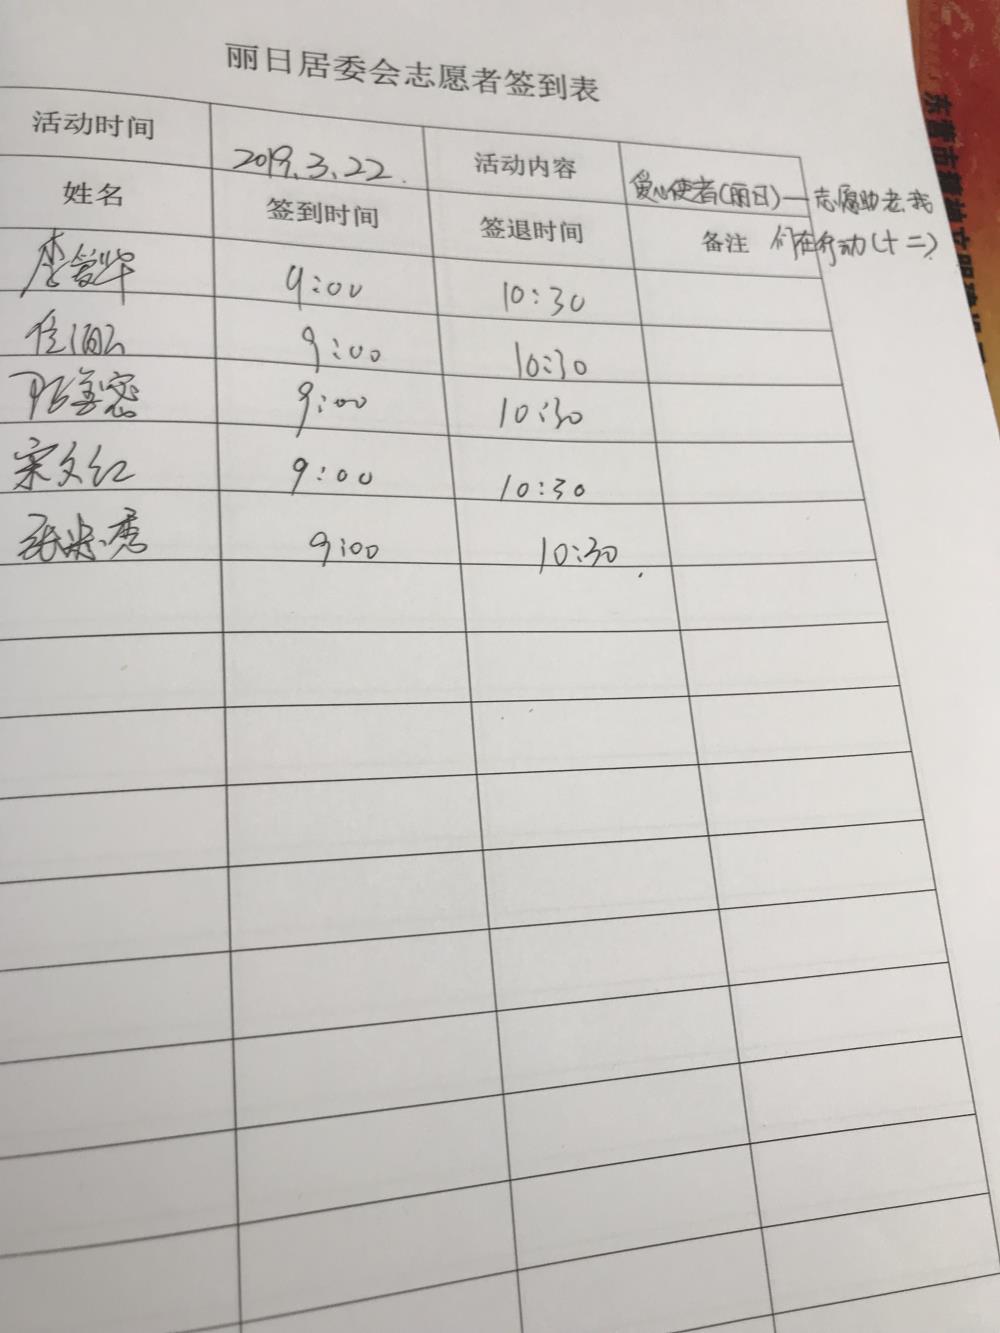 丽日居委会志愿者签到表
活动时间 2019.3.22. 活动内容 爱心使者(丽日)—志愿助老,我
们在行动(十二)
姓名 签到时间 签退时间 备注
李爱华 9:00 10:30
9:00 10:30
9:00 10:30
宋文红 9:00 10:30
张 秀 9:00 10:30.
东营市